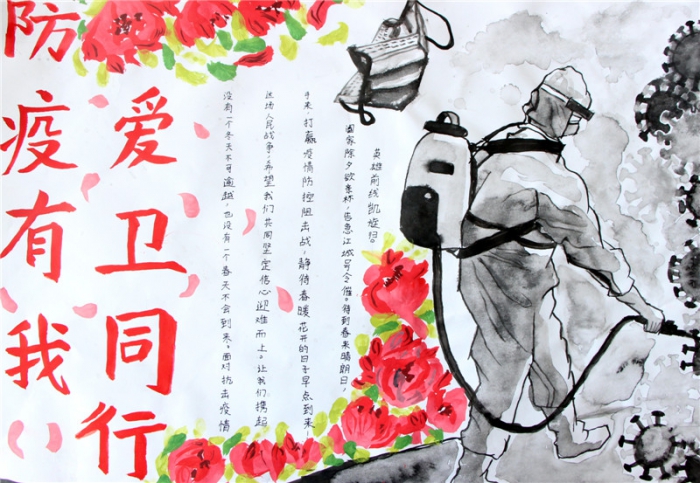 防疫有我
爱卫同行
没有一个冬天不可逾越,也没有一个春天不会到来。面对抗击疫情
这场人民战争,希望我们共同坚定信心迎难而上。让我们携起
手来,打赢疫情防控阻击战,静待春暖花开的日子早点到来!
国家除夕欲亲杯,告急江城号令催。待到春来晴朗日,
英雄前线凯旋归。